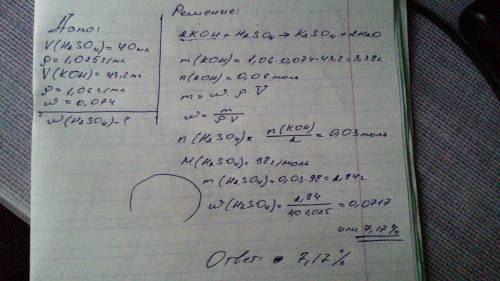 Дано:
V(H₂SO₄) = 40 мл
ρ = 1,025 г/мл
V(KOH) = 43,2 мл
ρ = 1,06 г/мл
ω = 0,074
ω(H₂SO₄) - ?
Решение:
2KOH + H₂SO₄ → K₂SO₄ + 2H₂O
m(KOH) = 1,06·0,074·43,2 = 3,39 г
n(KOH) = 0,06 моль
m = ω·ρ·V
ω = m/ρ·V
n(H₂SO₄) = n(KOH)/2 = 0,03 моль
M(H₂SO₄) = 98 г/моль
m(H₂SO₄) = 0,03·98 = 2,94 г
ω(H₂SO₄) = 2,94/40·1,025 = 0,0717
или 7,17%
Ответ: 7,17%